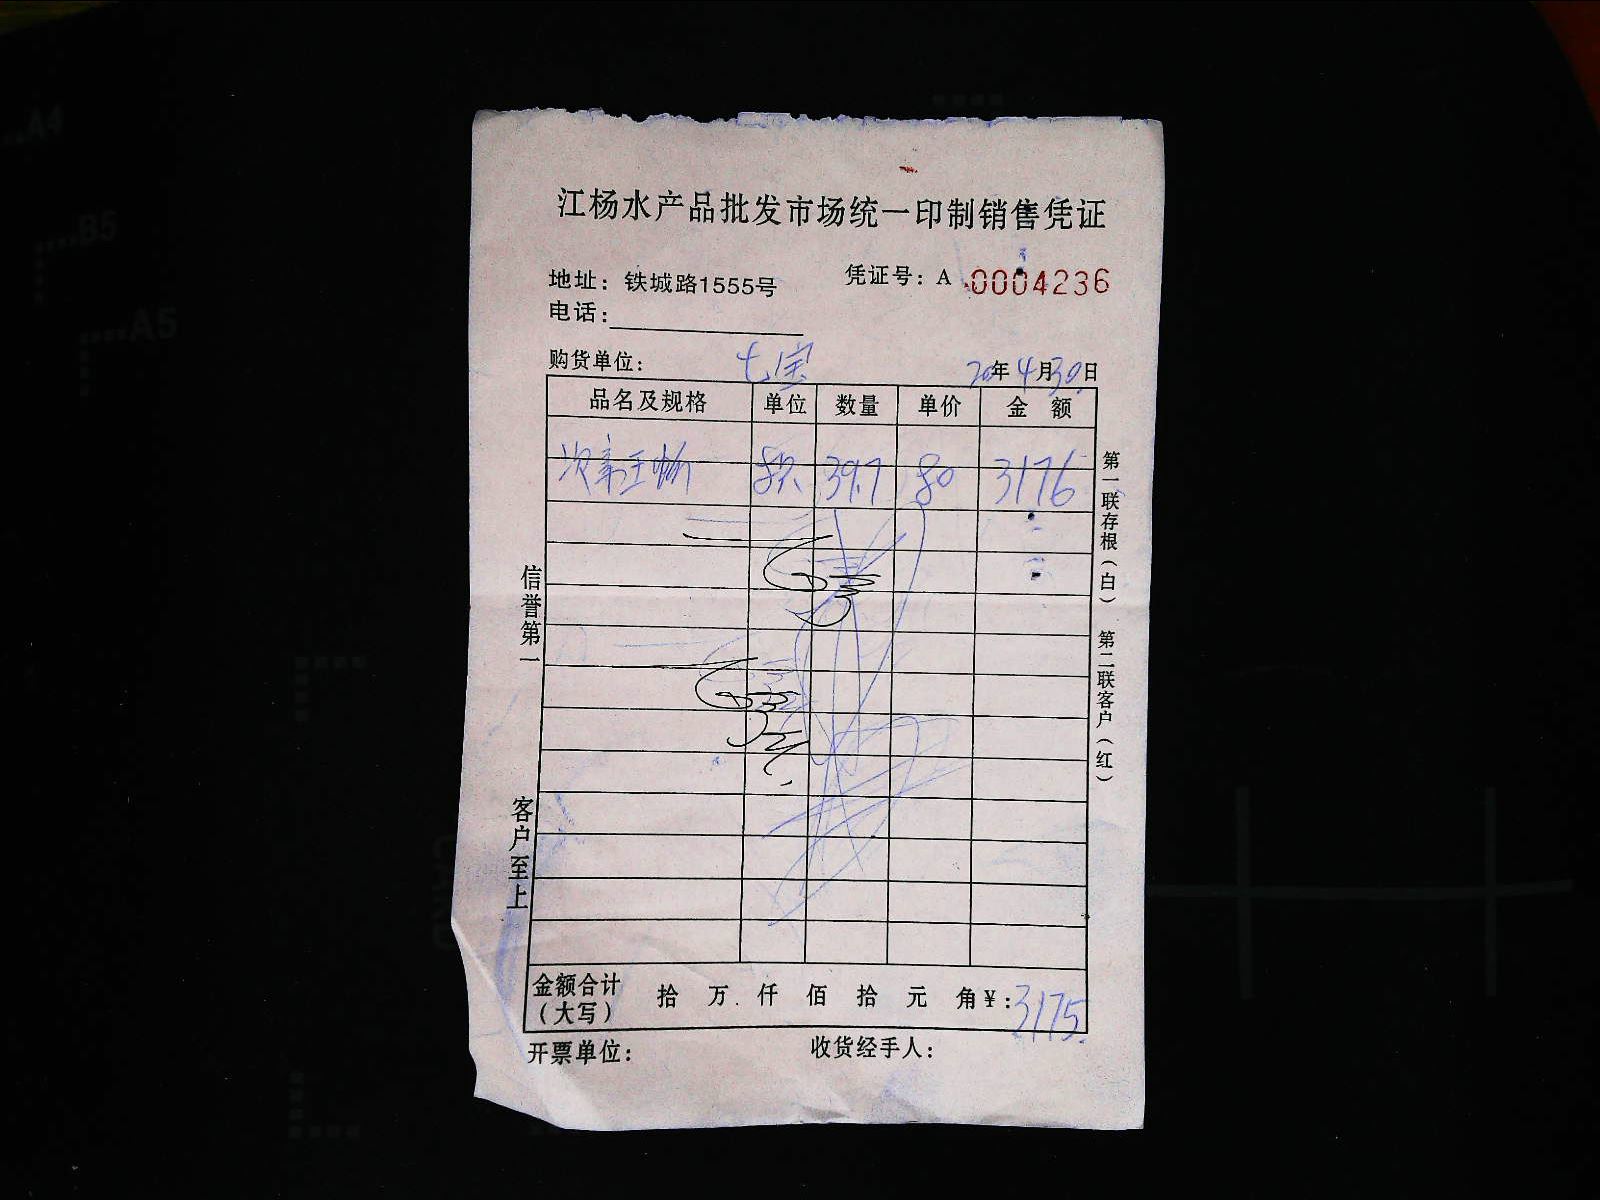 江杨水产品批发市场统一印制销售凭证
地址：铁城路1555号
凭证号：A 0004236
电话：
购货单位： 七宝
20年4月30日
品名及规格 单位 数量 单价 金 额
39.7 80 3176
信誉第一
客户至上
第一联存根（白）
第二联客户（红）
金额合计（大写） 拾 万 仟 佰 拾 元 角 ¥：3175
开票单位：
收货经手人：